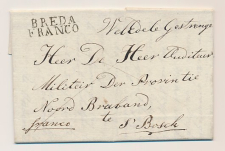 BREDA
FRANCO
WelEdele Gestrenge
Heer De Heer Auditeur
Militair Der Provintie
Noord Braband,
te
franco
S' Bosch